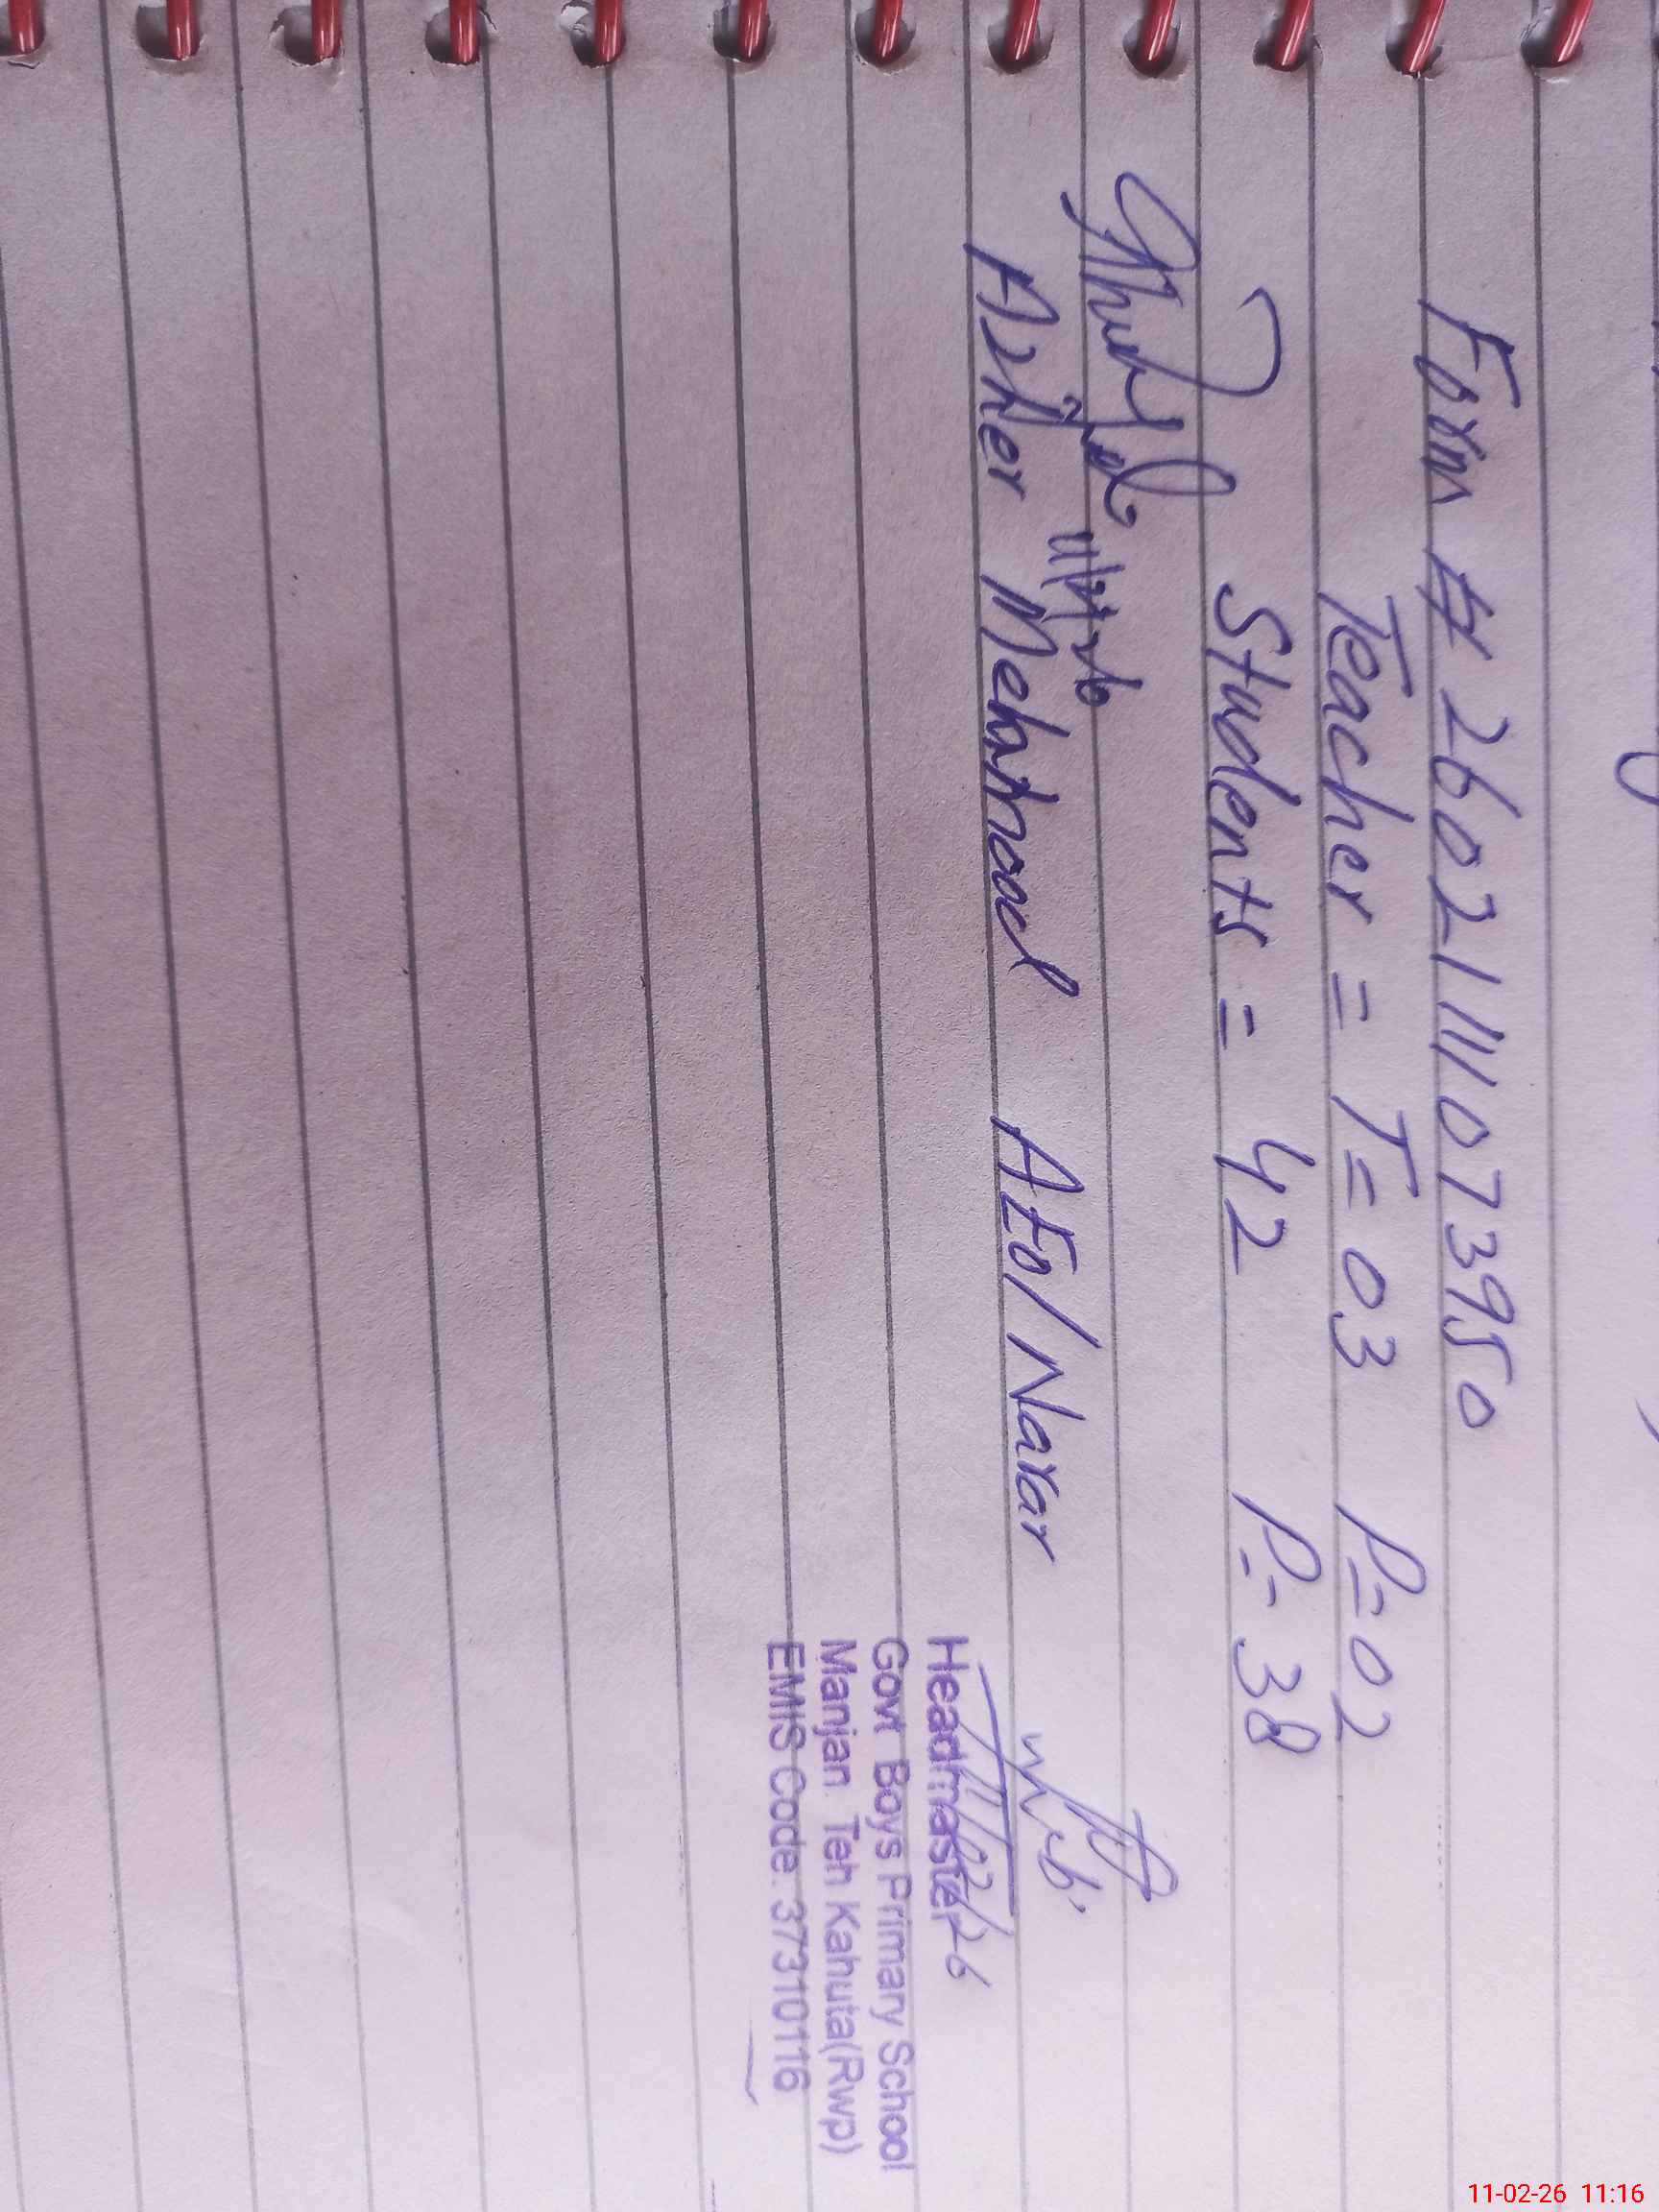 Form # 26021111073950
Teacher = T= 03 P= 02
Students = 42 P= 38
11/2/26
Asher Mehmood AEO/Narar
11/02/26
Headmaster
Govt Boys Primary School
Manjan Teh Kahuta(Rwp)
EMIS Code: 37310116
11-02-26 11:16